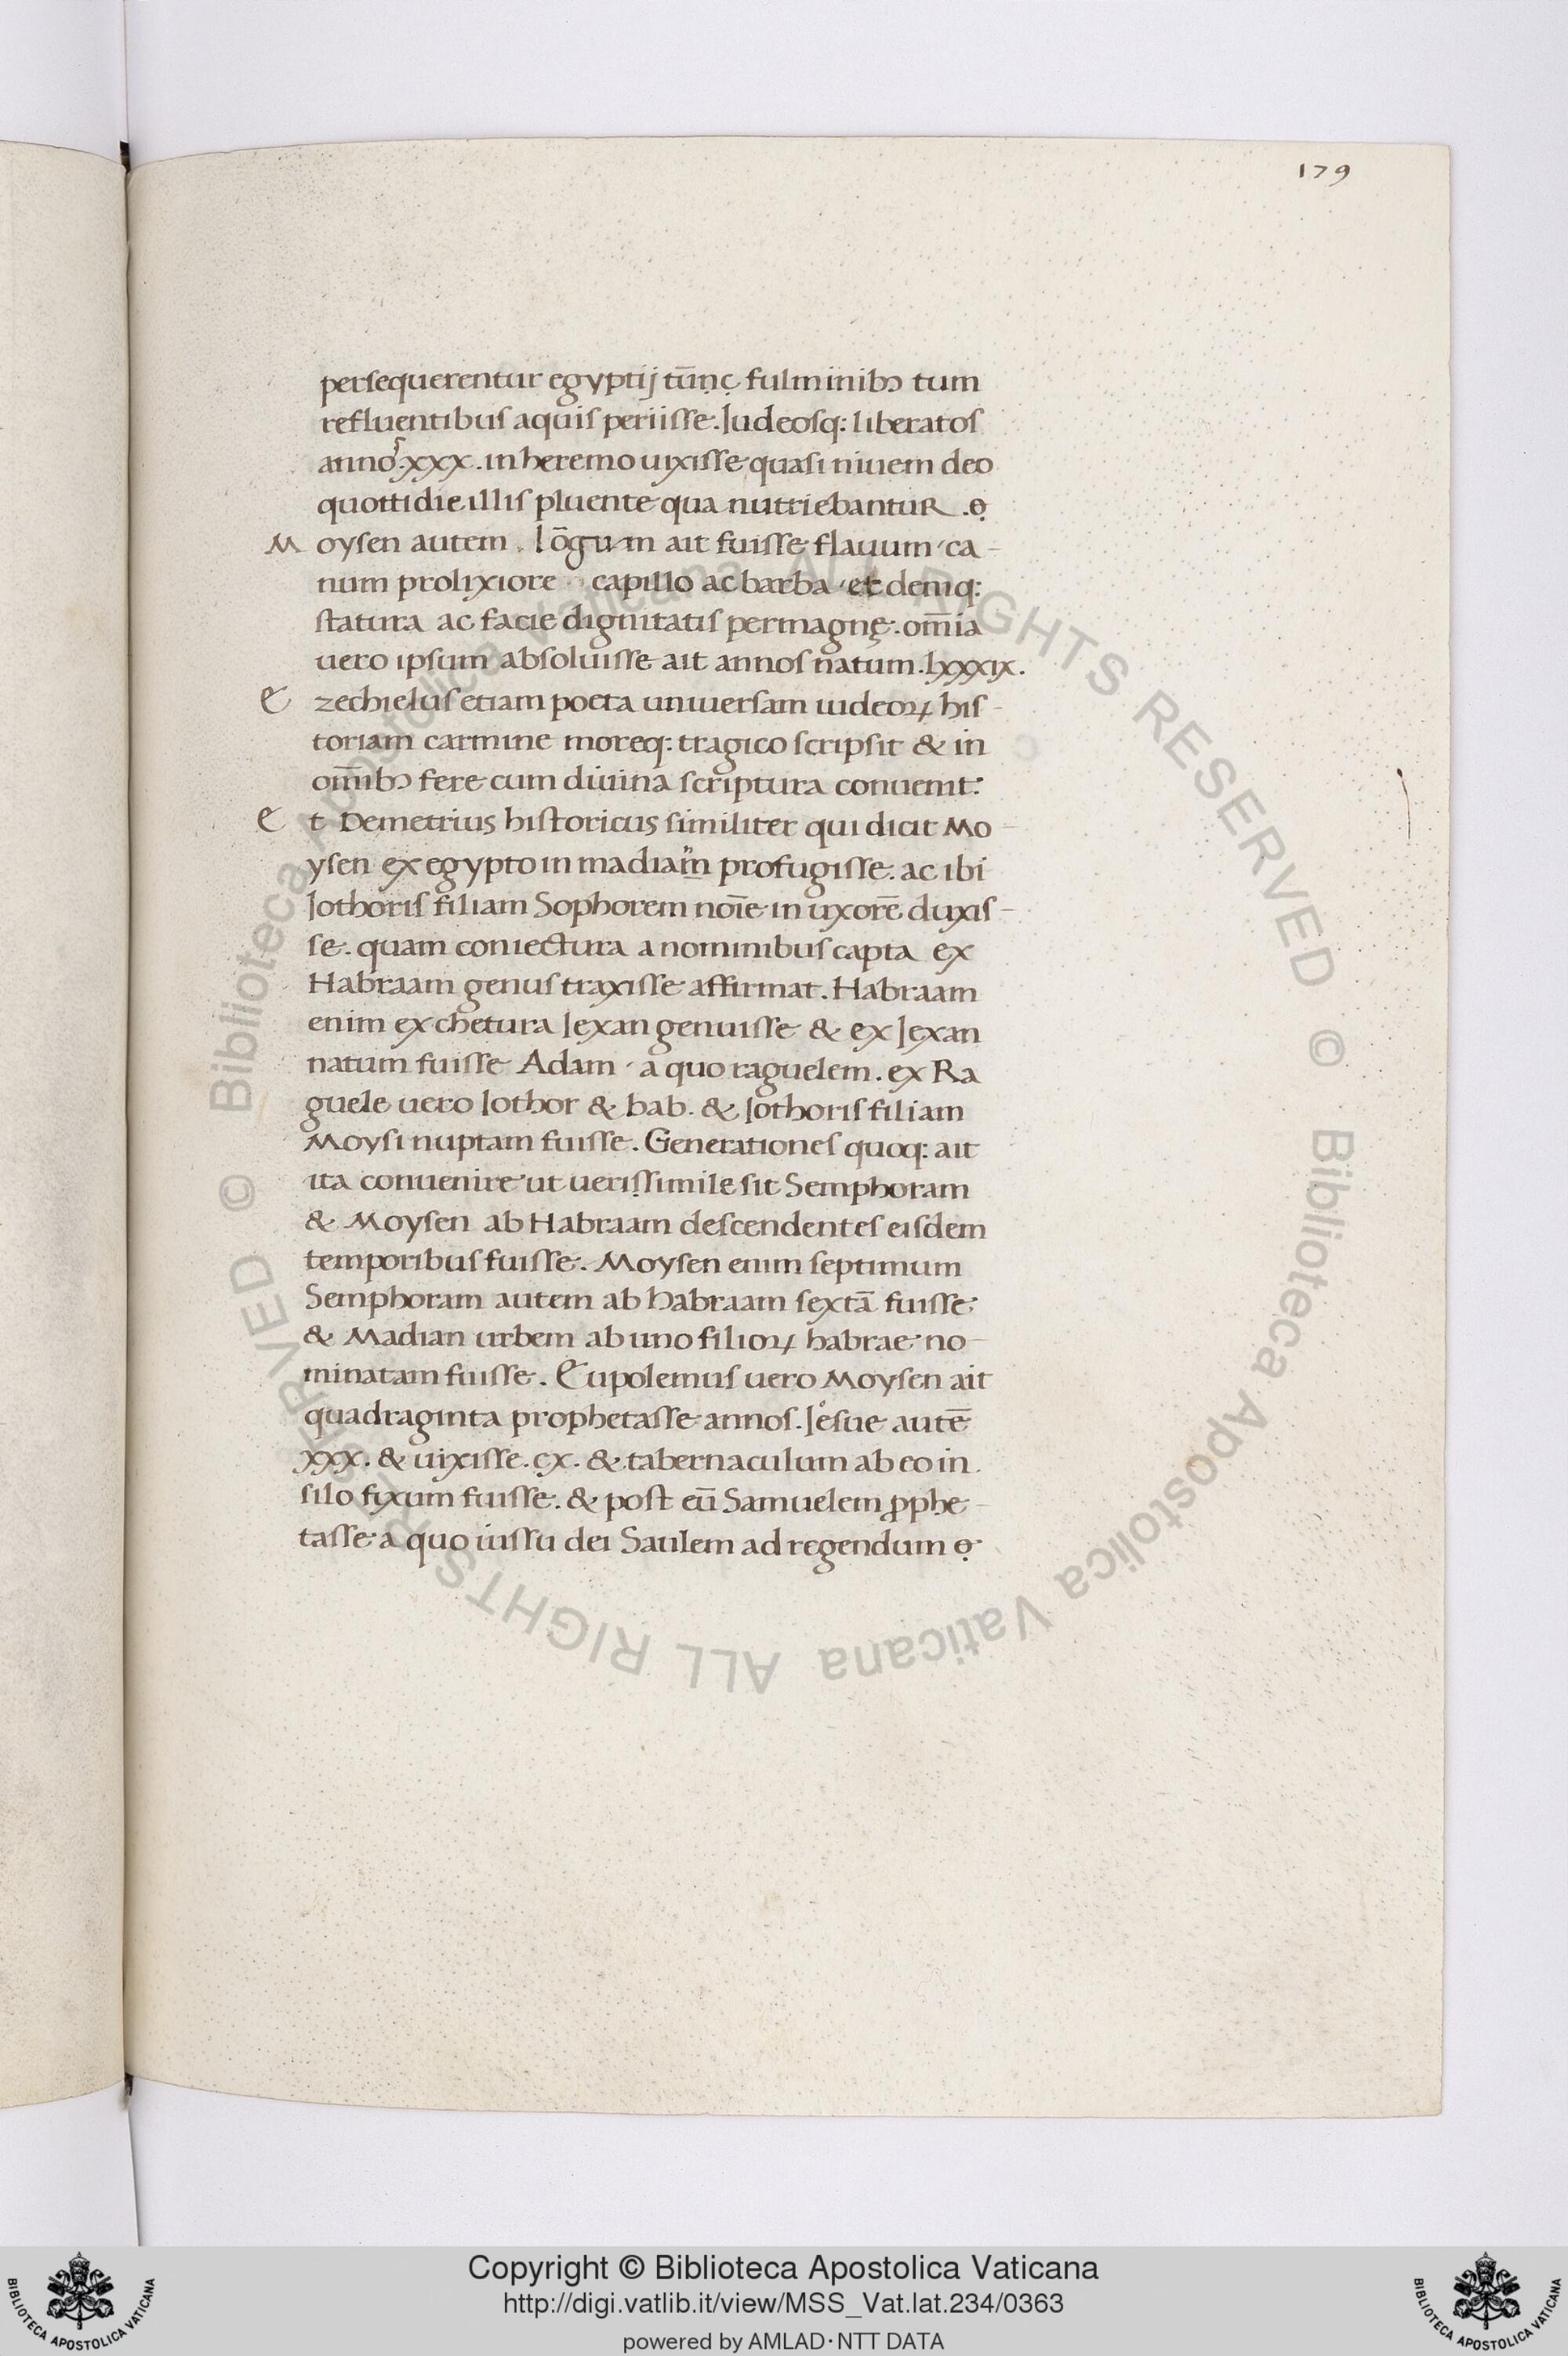 179
persequerentur egyptij tūnc̣ fulminibꝰ tum
refluentibus aquis periisse. Iudeosq: liberatos
annoſ.xxx. in heremo uixisse quasi niuem deo
quottidie illis pluente qua nutriebantuR.
Moysen autem. lōgum ait fuisse flauum ca-
num prolixiore capillo ac barba et deniq:
statura ac facie dignitatis permagnę. om̄ia
uero ipsum absoluisse ait annos natum. lxxxix.
Ezechielus etiam poeta uniuersam iudeoꝝ his-
toriam carmine moreq: tragico scripsit & in
om̄ibꝰ fere cum diuina scriptura conuenit:
Et Demetrius historicus similiter qui dicit Mo-
ysen ex egypto in madiam̈ profugisse. ac ibi
Iothoris filiam Sophorem noīe in uxorē duxis-
se. quam coniectura a nominibus capta ex
Habraam genus traxisse affirmat. Habraam
enim ex chetura Iexan genuisse & ex Iexan
natum fuisse Adam a quo raguelem. ex Ra
guele uero Iothor & bab. & Iothoris filiam
Moysi nuptam fuisse. Generationes quoq: ait
ita conuenire ut uerissimile sit Semphoram
& Moysen ab Habraam descendentes eisdem
temporibus fuisse. Moysen enim septimum
Semphoram autem ab habraam sextā fuisse
& Madian urbem ab uno filioꝝ habrae no-
minatam fuisse. Eupolemus uero Moysen ait
quadraginta prophetasse annos. Iesue autē
xxx. & uixisse. cx. & tabernaculum ab eo in
silo fixum fuisse. & post eū Samuelem ꝓphe-
tasse a quo iussu dei Saulem ad regendum
© Biblioteca Apostolica Vaticana ALL RIGHTS RESERVED © Biblioteca Apostolica Vaticana ALL RIGHTS RESERVED
Copyright © Biblioteca Apostolica Vaticana
http://digi.vatlib.it/view/MSS_Vat.lat.234/0363
powered by AMLAD·NTT DATA
BIBLIOTECA APOSTOLICA VATICANA
BIBLIOTECA APOSTOLICA VATICANA